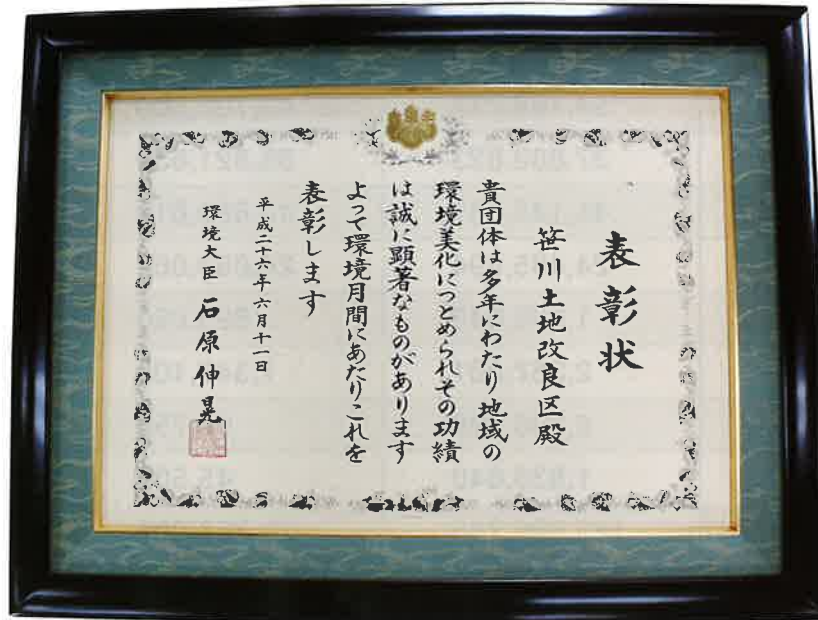 表彰状
笹川土地改良区殿
貴団体は多年にわたり地域の
環境美化につとめられその功績
は誠に顕著なものがあります
よって環境月間にあたりこれを
表彰します
平成二十六年六月十一日
環境大臣 石原伸晃